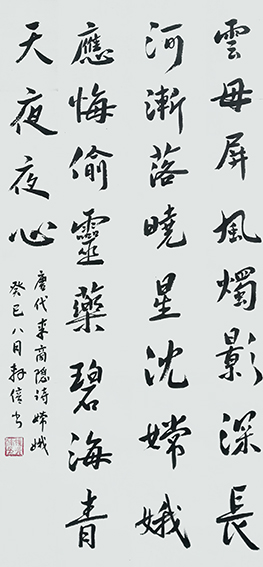 雲母屏風燭影深長
河漸落曉星沈嫦娥
應悔偷靈藥碧海青
天夜夜心
唐代李商隐诗嫦娥
癸巳八月